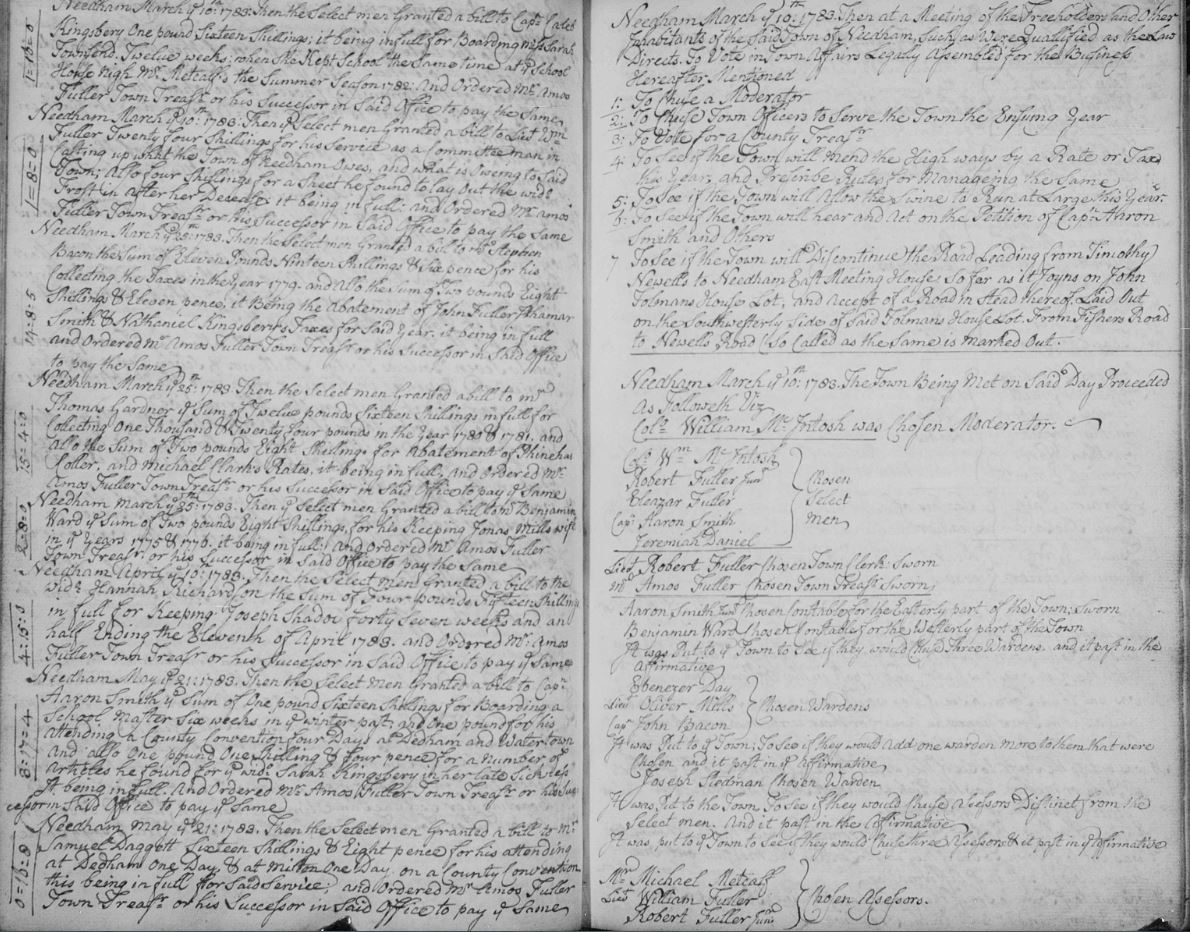 Needham March ye 10th: 1783. Then the Select men Granted a bill to Capt. Caleb
Kingsbery One pound Sixteen Shillings; it being in full for Boarding Mrs Sarah
Townsend. Twelve weeks; when She Kept School the Same time at ye School
House nigh Mr. Metcalfs the Summer Season 1782. And Ordered Mr. Amos
Fuller Town Treasr. or his Successor in Said Office to pay the Same
1=16=0
Needham March ye 10th: 1783. Then ye Select men Granted a bill to Lieut Wm
Fuller Twenty four Shillings for his Service as a Committee man in
Casting up what the Town of Needham Owes, and what is Oweing to Said
Town; also four Shillings for a Sheet he found to lay Out the widw.
Frost in after her Decease: it being in full: and Ordered Mr. Amos
Fuller Town Treasr. or his Successor in Said Office to pay the Same
1=8=0
Needham March ye 25th: 1783. Then the Select men Granted a bill to Mr. Stephen
Bacon the Sum of Eleven Pounds Ninteen Shillings & Six pence for his
Collecting the Taxes in the year 1779. and also the Sum of Two pounds Eight
Shillings & Eleven pence, it Being the Abatement of John Fuller, Thamar
Smith & Nathaniel Kingsbery's Taxes for Said year. it being in full
and Ordered Mr. Amos Fuller Town Treasr. or his Successor in Said Office
to pay the Same
14=8=5
Needham March ye 25th: 1783. Then the Select men Granted a bill to Mr
Thomas Gardner ye Sum of Twelve pounds Sixteen Shillings in full for
Collecting One Thousand & Twenty four pounds in the year 1780 & 1781. and
also the Sum of Two pounds Eight Shillings for Abatement of Phinehas
Coller, and Michael Clark's Rates, it being in full. and Ordered Mr.
Amos Fuller Town Treasr. or his Successor in Said Office to pay ye Same
15=4=0
Needham March ye 25th: 1783. Then ye Select men Granted a bill to Mr Benjamin
Ward ye Sum of Two pounds Eight Shillings, for his Keeping Jonas Mills wife
in ye years 1775 & 1776. it being in full: and Ordered Mr. Amos Fuller
Town Treasr. or his Successor in Said Office to pay the Same
2=8=0
Needham April ye 10th: 1783. Then the Select men Granted a bill to the
Widw. Hannah Richardson the Sum of Four pounds Fifteen Shillings
in full for Keeping Joseph Shadow forty Seven weeks and an
half Ending the Eleventh of April 1783. and Ordered Mr. Amos
Fuller Town Treasr. or his Successor in Said Office to pay ye Same
4=15=0
Needham May ye 21: 1783. Then the Select men Granted a bill to Capt.
Aaron Smith ye Sum of One pound Sixteen Shillings for Boarding a
School Master Six weeks in ye winter past, and One pound for his
attending a County Convention four Days at Dedham and Watertown
and also One pound One Shilling & four pence for a Number of
Articles he found for ye widw. Sarah Kingsbery in her late Sickness
It being in full. And Ordered Mr. Amos Fuller Town Treasr. or his Suc
cessor in Said Office to pay ye Same
8=17=4
Needham May ye 21: 1783. Then the Select men Granted a bill to Mr
Samuel Daggett Sixteen Shillings & Eight pence for his attending
at Dedham One Day, & at Milton One Day, on a County Convention
this being in full for Said Service, and Ordered Mr. Amos Fuller
Town Treasr. or his Successor in Said Office to pay ye Same
0=16=8
Needham March ye 10th: 1783. Then at a Meeting of the Freeholders and Other
Inhabitants of the Said Town of Needham, Such as Were Qualified as the Law
Directs. To Vote in Town Affairs Legally Assembled for the Business
Hereafter Mentioned
1: To Chuse a Moderator
2: To Chuse Town Officers to Serve the Town the Ensuing Year
3: To Vote for a County Treasr.
4: To See if the Town will Mend the High ways by a Rate or Tax
this Year, and Prescribe Rules for Managening the Same
5: To See if the Town will Allow the Swine to Run at Large this Year.
6: To See if the Town will hear and Act on the Petition of Capt. Aaron
Smith and Others
7 To See if the Town will Discontinue the Road Leading from Timothy
Newells to Needham East Meeting House: So far as it Joyns on John
Tolmans House Lot, and accept of a Road in Stead thereof, Laid Out
on the Southwesterly Side of Said Tolmans House Lot. From Fishers Road
to Newells Road (So Called as the Same is Marked Out.
Needham March ye 10th: 1783. The Town Being Met on Said Day Proceeded
As Followeth Viz
Colo. William McIntosh was Chosen Moderator.
Colo. Wm McIntosh
Robert Fuller Junr
Eleazar Fuller
Capt. Aaron Smith
Jeremiah Daniel
Chosen
Select
men
Lieut Robert Fuller Chosen Town Clerk: Sworn
Mr Amos Fuller Chosen Town Treasr. Sworn
Aaron Smith Junr. Chosen Constable for the Easterly part of the Town; Sworn
Benjamin Ward Chosen Constable for the Westerly part of the Town
It was Put to ye Town to See if they would Chuse Three Wardens. and it past in the
affirmative
Ebenezer Day
Lieut Oliver Mills
Capt John Bacon
Chosen Wardens
It was Put to ye Town; To See if they would Add one warden more to them that were
Chosen and it past in ye affirmative
Joseph Stedman Chosen Warden
It was put to the Town To See if they would Chuse Assessors Distinct from the
Select men. And it past in the Affirmative
It was put to ye Town to See if they would Chuse three Assessors & it past in ye Affirmative
Mr Michael Metcalf
Lieut William Fuller
Robert Fuller Junr
Chosen Assessors.